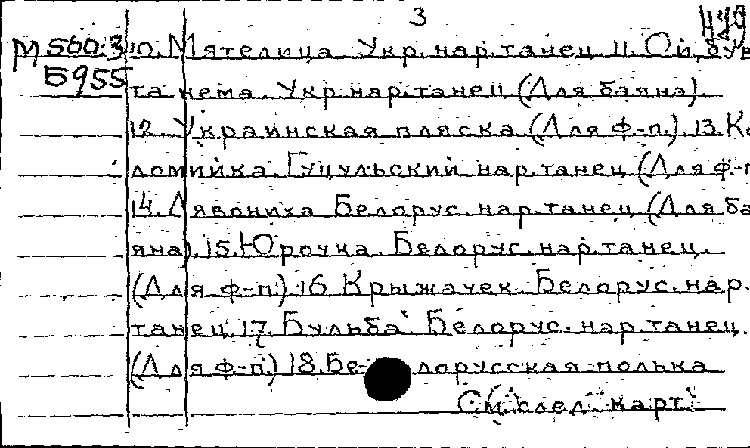 3
М 500.3 10. Мятелица. Укр. нар. танец. 11. Ой,
Б 955 та нема. Укр. нар. танец (Для баяна).
12. Украинская пляска (Для ф-п.). 13. Ко
ломийка. Гуцульский нар. танец (Для ф-п
14. Лявониха. Белорус. нар. танец (Для ба
яна). 15. Юрочка. Белорус. нар. танец.
(Для ф-п.). 16. Крыжачек. Белорус. нар.
танец. 17. Бульба. Белорус. нар. танец.
(Для ф-п.) 18. Белорусская полька
См. след. карт.